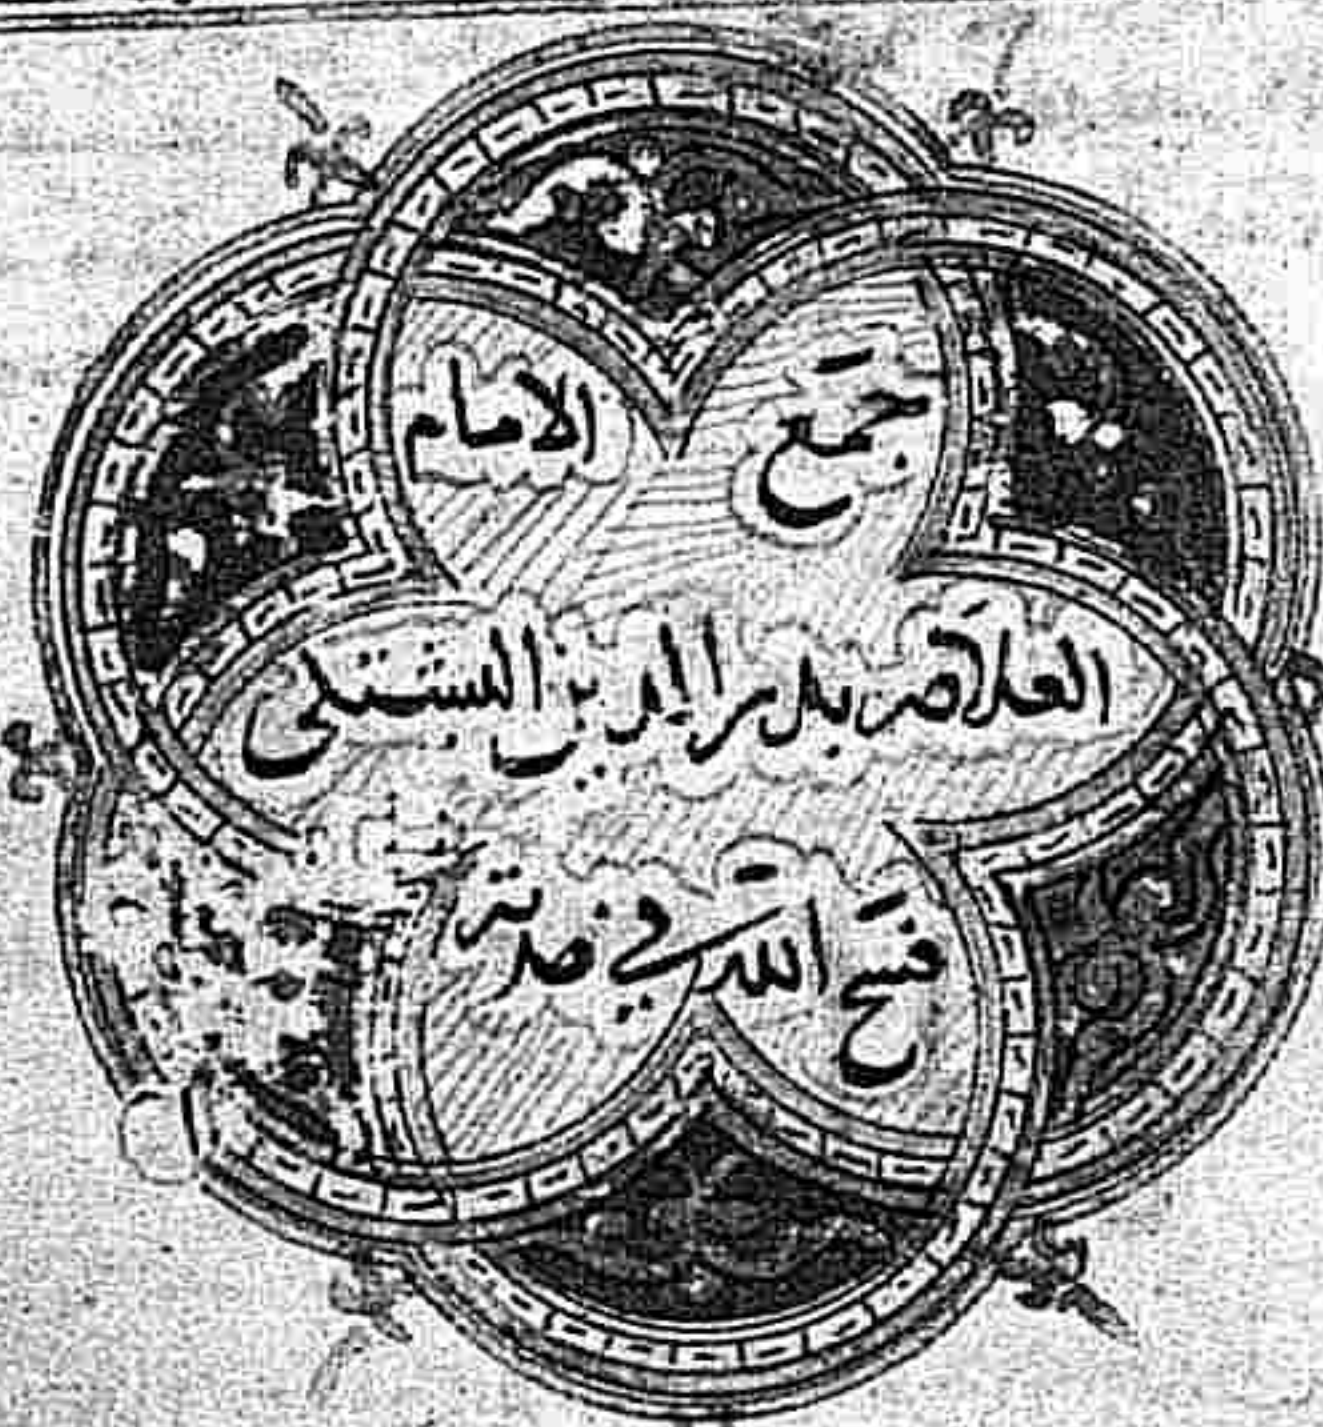 جمع الامام
العلامة بدر الدين البشتكي
فسح الله في مدته